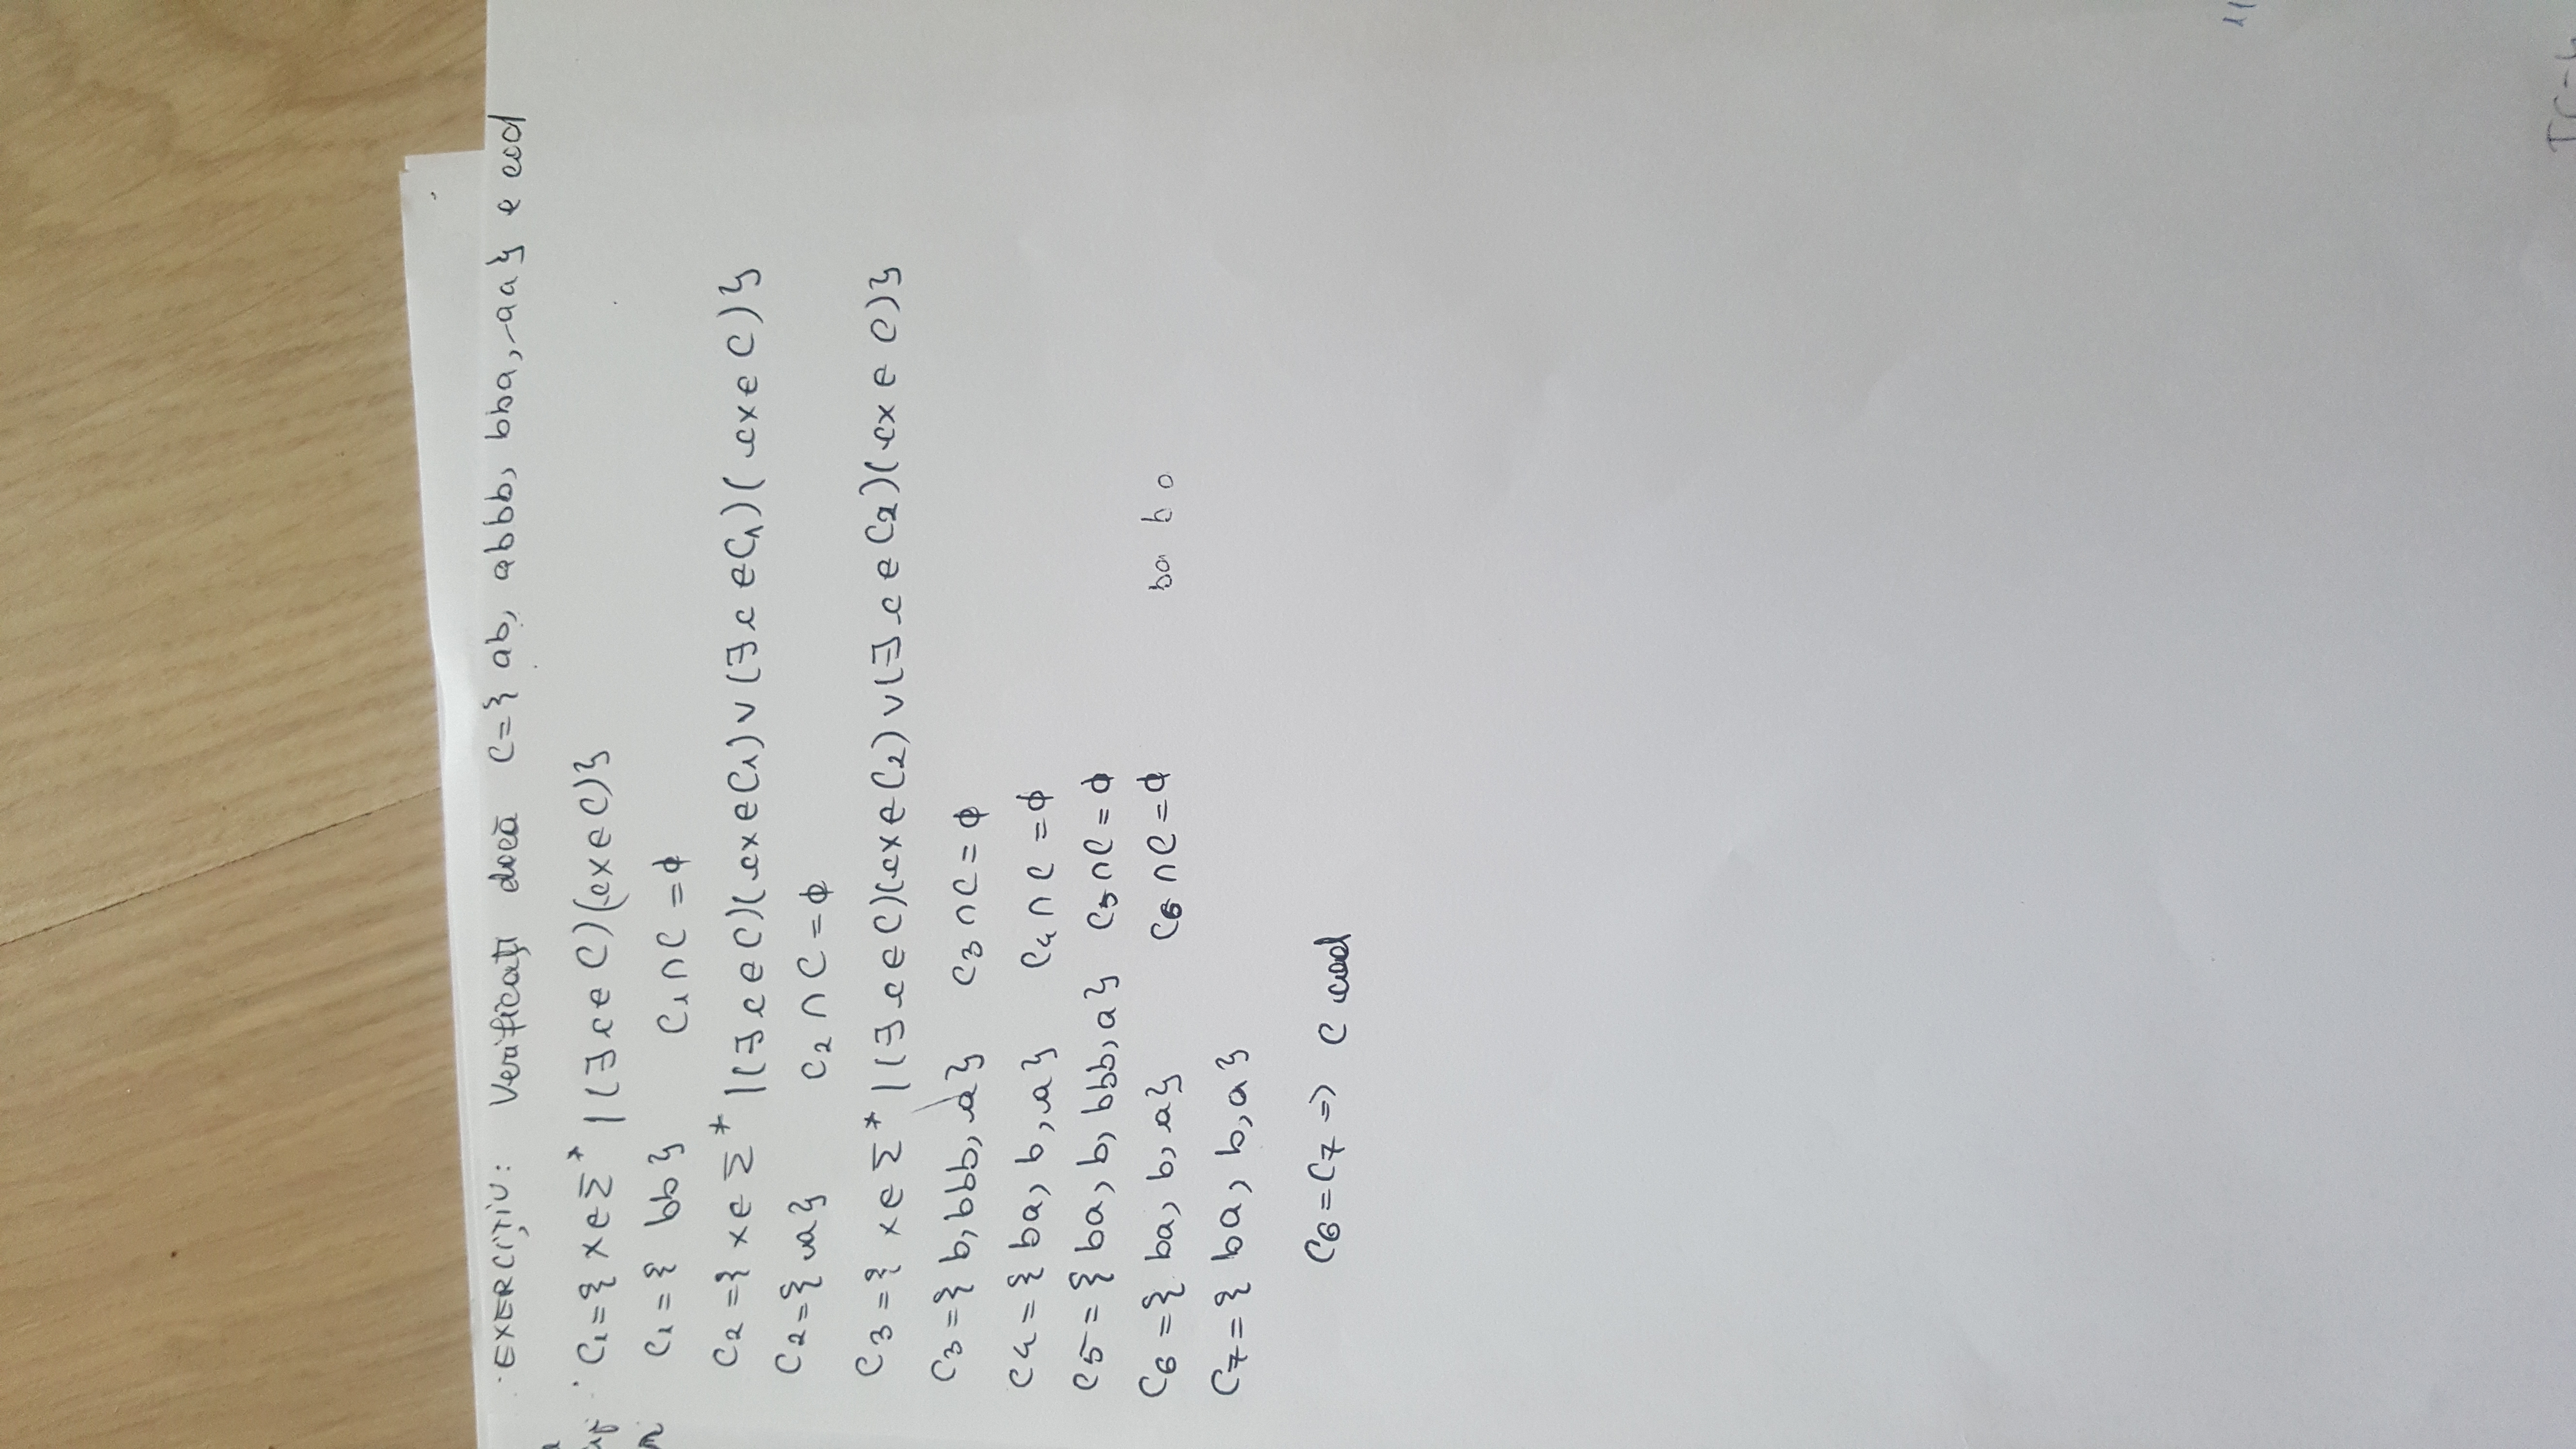 EXERCIȚIU: Verificați dacă C={ ab, abbb, bba, aa} e cod
C₁={ x∈Σ* | (∃ c∈ C)(cx∈C)}
C₁={ bb} C₁∩C =ϕ
C₂ ={ x∈ Σ* |(∃ c∈C)(cx∈C₁) ∨ (∃ c ∈C₁)( cx∈ C)}
C₂={ a} C₂ ∩ C =ϕ
C₃ ={ x∈ Σ* | (∃ c∈C)(cx∈C₂) ∨(∃ c ∈ C₂)( cx ∈ C)}
C₃ ={ b, bbb, a} C₃ ∩C = ϕ
C₄ = { ba, b, a} C₄ ∩ C = ϕ
C₅ = { ba, b, bbb, a} C₅ ∩C = ϕ
C₆ ={ ba, b, a} C₆ ∩C =ϕ ba b a
C₇ = { ba, b, a}
C₆ = C₇ => C cod